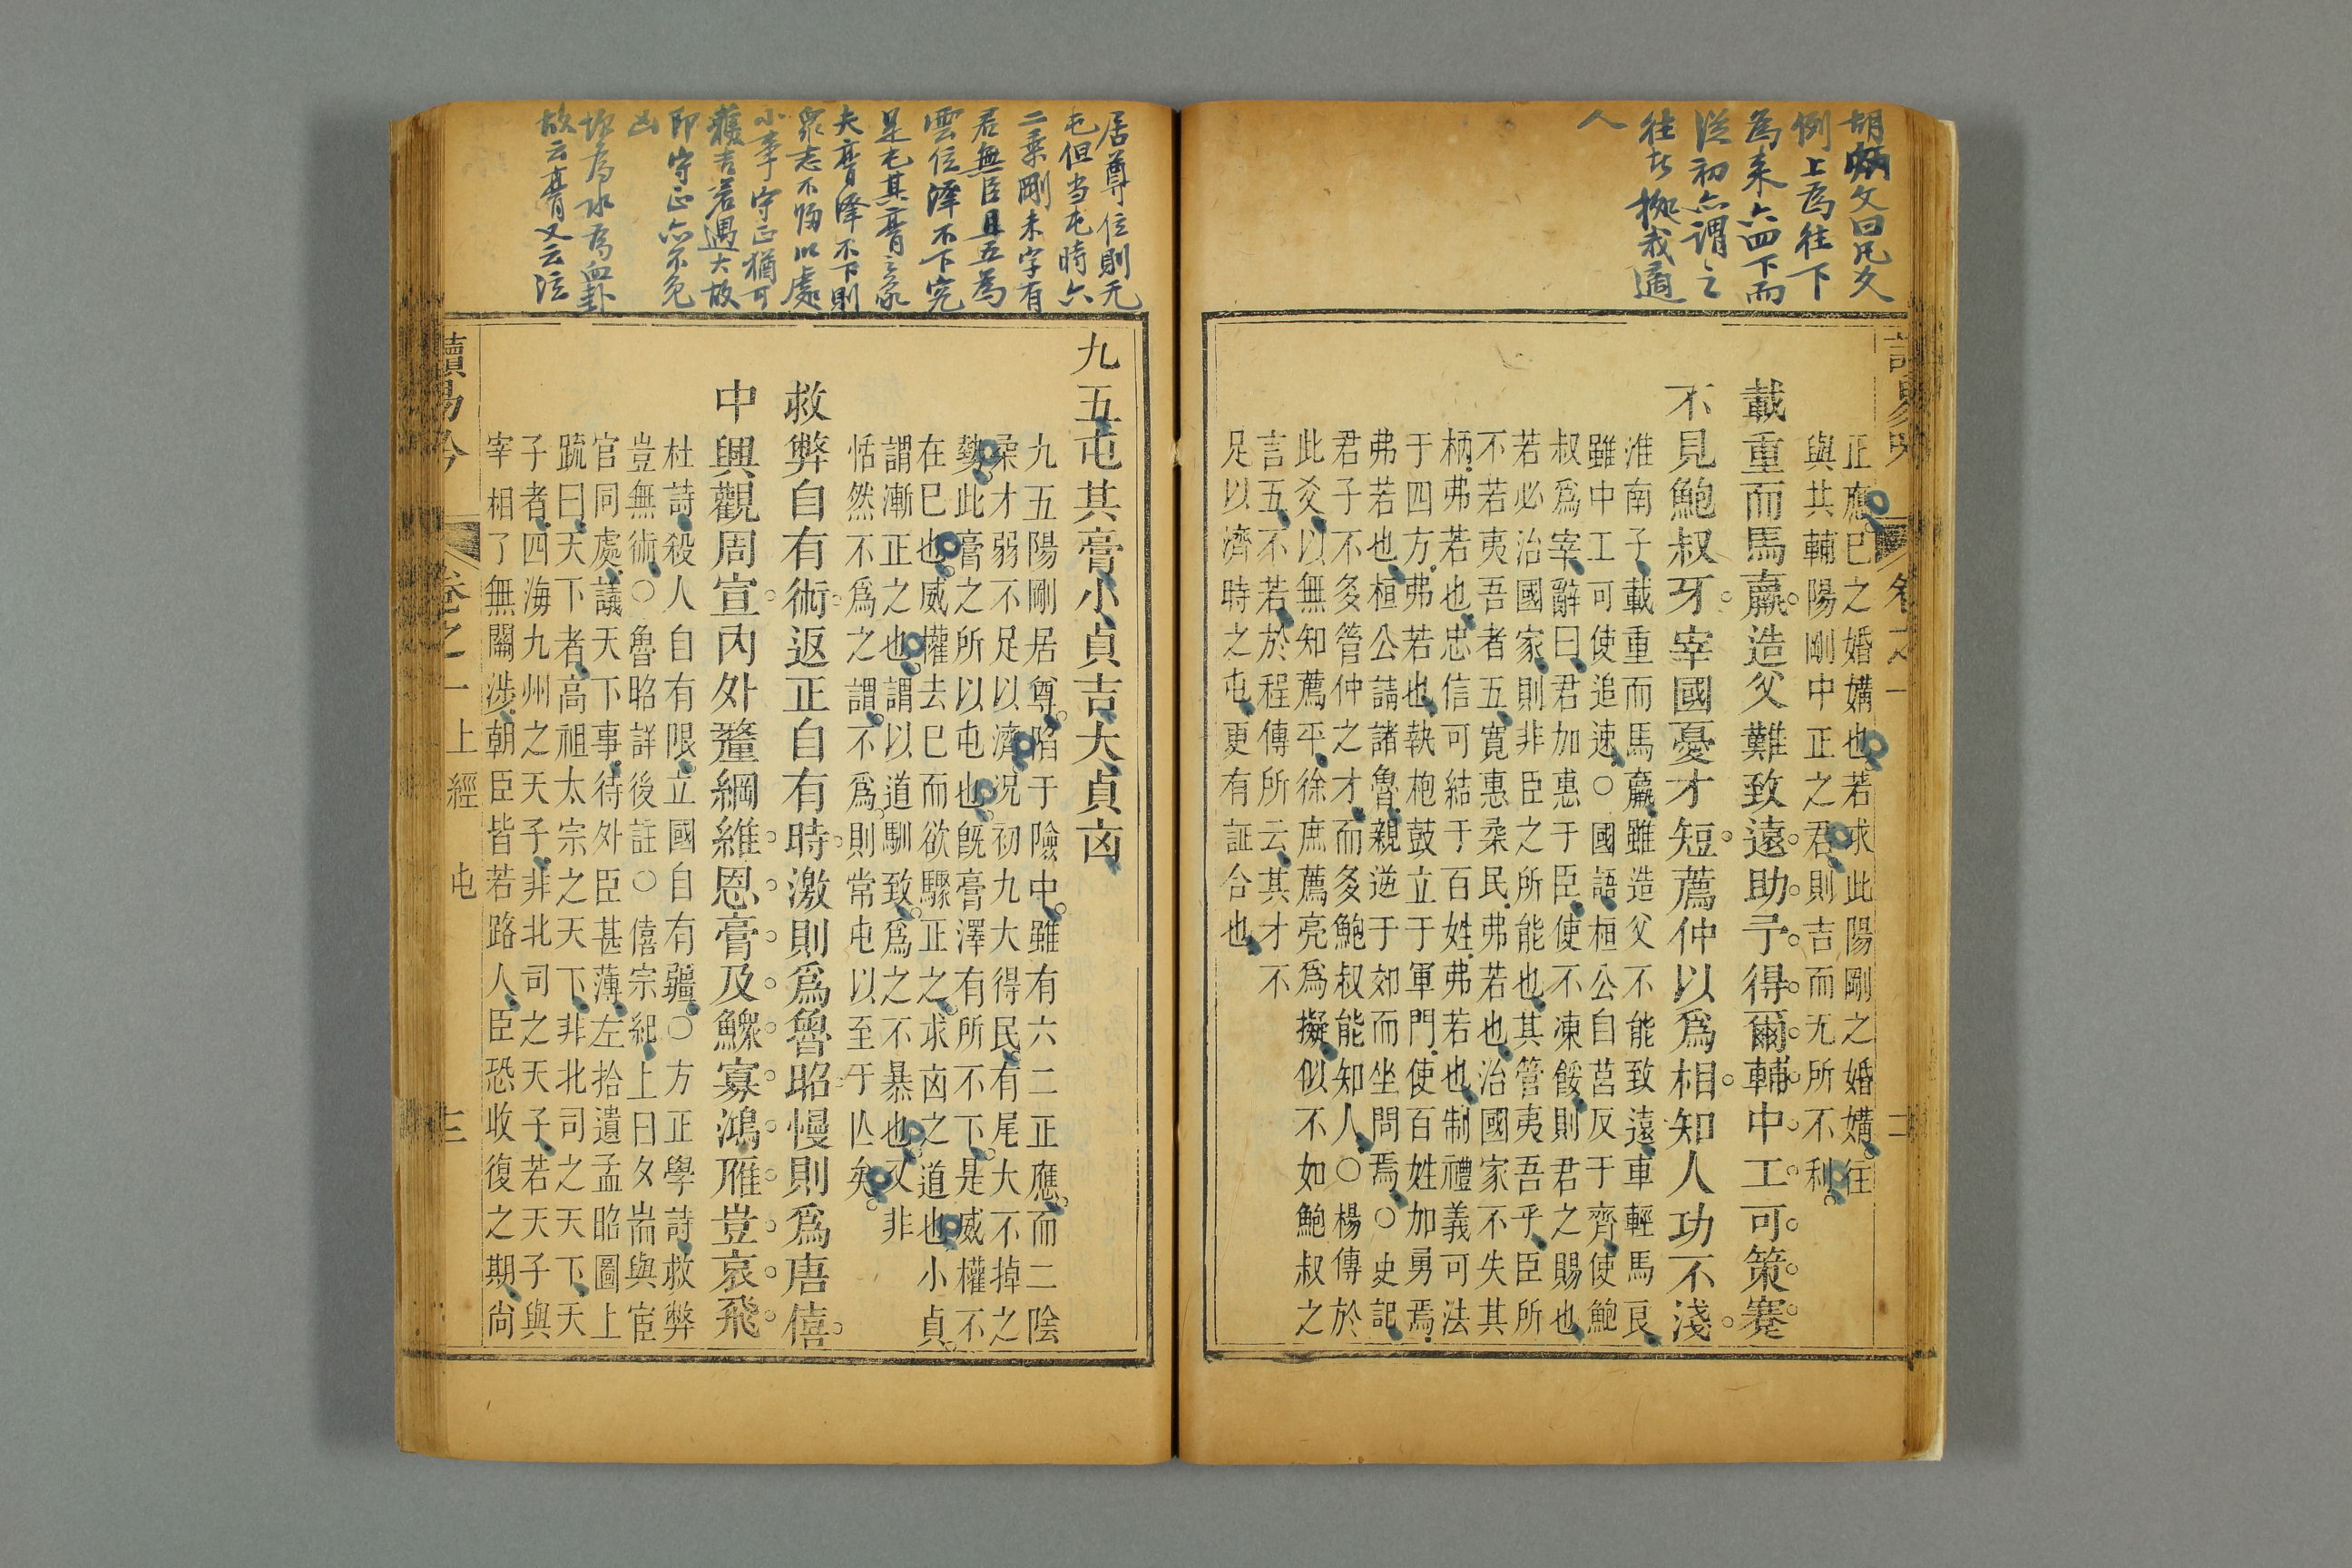 胡炳文曰凡爻
例上為往下
為來六四下而
從初亦謂之
往者據我適
人
正應已之婚媾也若求此陽剛之婚媾往
與共輔陽剛中正之君則吉而无所不利
載重而馬羸造父難致遠助予得爾輔中工可策蹇
不見鮑叔牙宰國憂才短薦仲以爲相知人功不淺
淮南子載重而馬羸雖造父不能致遠車輕馬良
雖中工可使追速○國語桓公自莒反于齊使鮑
叔爲宰辭曰君加惠于臣使不凍餒則君之賜也
若必治國家則非臣之所能也其管夷吾乎臣所
不若夷吾者五寬惠柔民弗若也治國家不失其
柄弗若也忠信可結于百姓弗若也制禮義可法
于四方弗若也執枹鼓立于軍門使百姓加勇焉
弗若也桓公請諸魯親逆于郊而坐問焉○史記
君子不多管仲之才而多鮑叔能知人○楊傳於
此爻以無知薦平徐庶薦亮爲擬似不如鮑叔之
言五不若於程傳所云其才不
足以濟時之屯更有証合也
讀易
卷之一
二
居尊位則无
屯但当屯時六
二乗剛未字有
君無臣且五為
雲位澤不下究
是屯其膏之象
夫膏澤不下則
衆志不孚以處
小事守正猶可
獲吉若遇大故
即守正亦不免
凶
坎為水為血卦
故云膏又云泣
九五屯其膏小貞吉大貞凶
九五陽剛居尊陷于險中雖有六二正應而二陰
柔才弱不足以濟況初九大得民有尾大不掉之
勢此膏之所以屯也旣膏澤有所不下是威權不
在已也威權去已而欲驟正之求凶之道也小貞
謂漸正之也謂以道馴致爲之不暴也又非
恬然不爲之謂不爲則常屯以至于亾矣
救弊自有術返正自有時激則爲魯昭慢則爲唐僖
中興觀周宣內外釐綱維恩膏及鰥寡鴻雁豈哀飛
杜詩殺人自有限立國自有疆○方正學詩救弊
豈無術○魯昭詳後註○僖宗紀上曰夕耑與宦
官同處議天下事待外臣甚薄左拾遺孟昭圖上
疏曰天下者高祖太宗之天下非北司之天下天
子者四海九州之天子非北司之天子若天子與
宰相了無關涉朝臣皆若路人臣恐收復之期尚
讀易
卷之一上經 屯
三